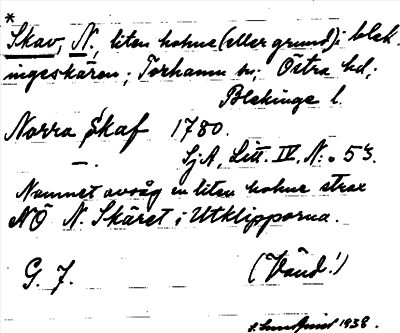 *
Skav, N., liten holme (eller grund) i blek-
ingeskären; Torhamn sn; Östra hd;
Blekinge l.
Norra Skaf 1780.
—. SjA, Litt. IV. N:o 53.
Namnet avsåg en liten holme strax
NÖ N. Skäret i Utklipporna.
G. F. (Vänd!)
S. Lundqvist 1938.